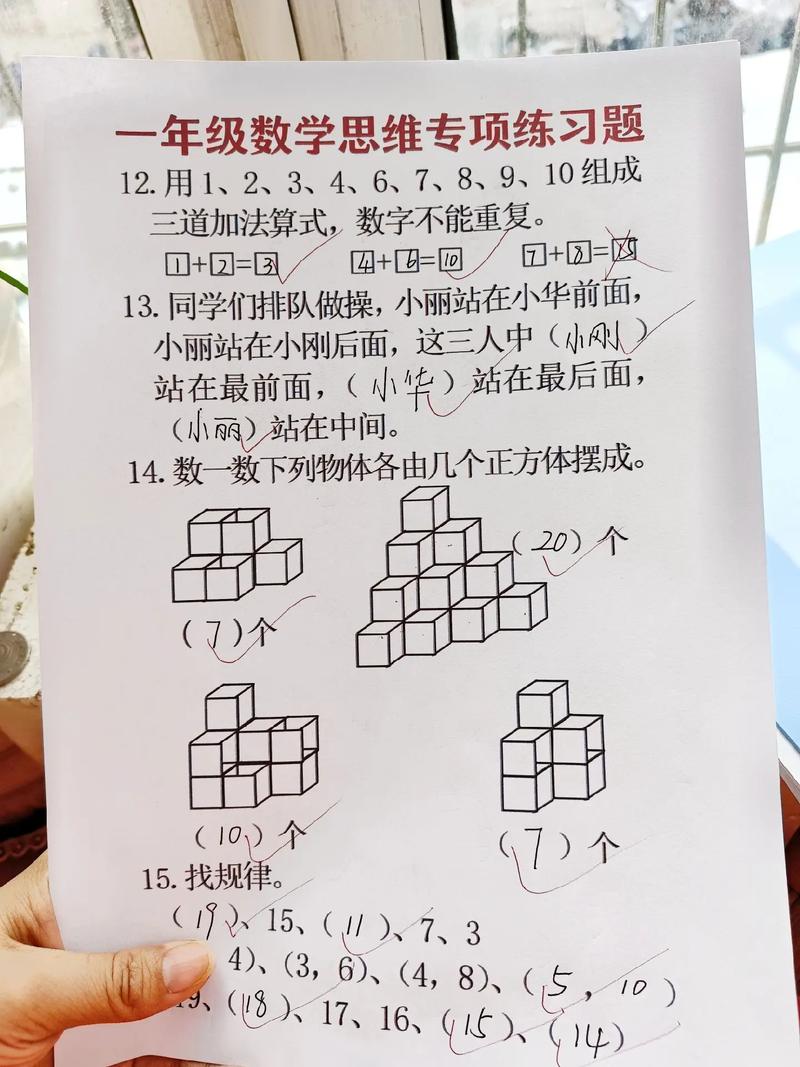 一年级数学思维专项练习题
12. 用 1、2、3、4、6、7、8、9、10 组成
三道加法算式，数字不能重复。
1+2=3 4+6=10 7+8=15
13. 同学们排队做操，小丽站在小华前面，
小丽站在小刚后面，这三人中（小刚）
站在最前面，（小华）站在最后面，
（小丽）站在中间。
14. 数一数下列物体各由几个正方体摆成。
（20）个
（7）个
（10）个 （7）个
15. 找规律。
（19）、15、（11）、7、3
4)、(3，6)、(4，8)、(5，10)
19、（18）、17、16、（15）、（14）